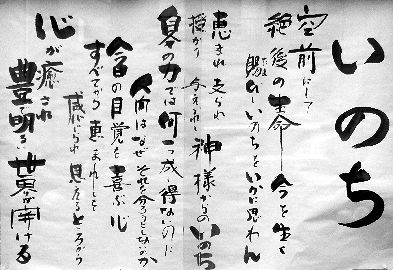 いのち
空前にして
絶後の生命 今を生く
賜りしいのちをいかに思わん
恵まれ支られ
授かり 与えられし神様からのいのち
自分の力では何一つ成し得ないのに
人間はなぜそれを
今日の目覚を喜ぶ心
すべてが恵まれしと
感じられ 見えるところから
心が癒され
豊明るい世界が開ける